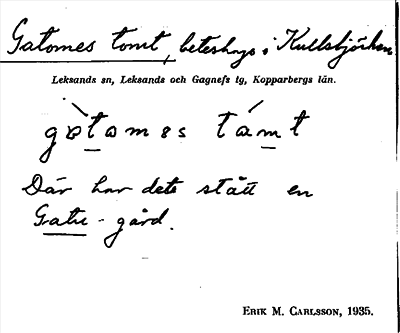 Gatomes tomt, beteshage i Kullsbjörken
Leksands sn, Leksands och Gagnefs tg, Kopparbergs län.
gɷ̀tomɛs támt
Där har det stått en
Gatu-gård.
ERIK M. CARLSSON, 1935.